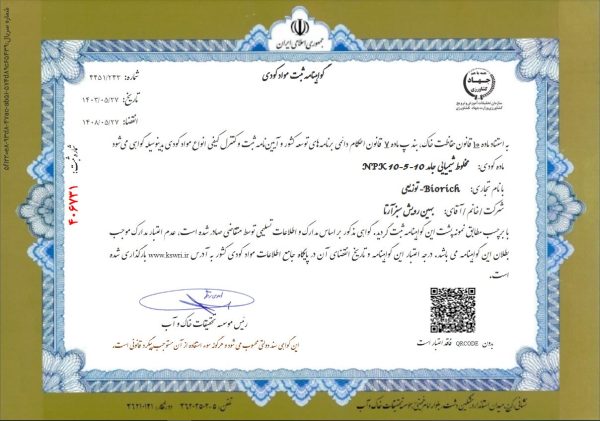 جمهوری اسلامی ایران
گواهینامه ثبت مواد کودی
شماره: ۴۴۵۱/۲۴۳
تاریخ: ۱۴۰۳/۰۵/۲۷
انقضاء: ۱۴۰۸/۰۵/۲۷
همه با هم
جهاد
کشاورزی
سازمان تحقیقات، آموزش و ترویج کشاورزی
شماره ثبت: ۴۰۶۷۳۱
به استناد ماده ۱۰ قانون حفاظت خاک، بند پ ماده ۷ قانون احکام دائمی برنامه‌های توسعه کشور و آیین‌نامه ثبت و کنترل کیفی انواع مواد کودی بدینوسیله گواهی می‌شود
ماده کودی: مخلوط شیمیایی جامد NPK 10-5-10
با نام تجاری: Biorich-توزیعی
شرکت / خانم / آقای: بهین رویش سبز آرتا
با برچسب مطابق نمونه پشت این گواهینامه ثبت گردید. گواهی مذکور بر اساس مدارک و اطلاعات تسلیمی توسط متقاضی صادر شده است، عدم اعتبار مدارک موجب
بطلان این گواهینامه می باشد. درجه اعتبار این گواهینامه و تاریخ انقضای آن در پایگاه جامع اطلاعات مواد کودی کشور به آدرس www.kswri.ir بارگذاری شده
است.
رئیس موسسه تحقیقات خاک و آب
بدون QRCODE فاقد اعتبار است
این گواهی سند دولتی محسوب می شود و هرگونه سوء استفاده از آن مستوجب پیگرد قانونی است.
نشانی: کرج، میدان استاندارد، مشکین دشت، بلوار امام خمینی، موسسه تحقیقات خاک و آب
تلفن: ۵-۳۶۲۰۲۵۰۴ دورنگار: ۳۶۲۱۰۱۲۱